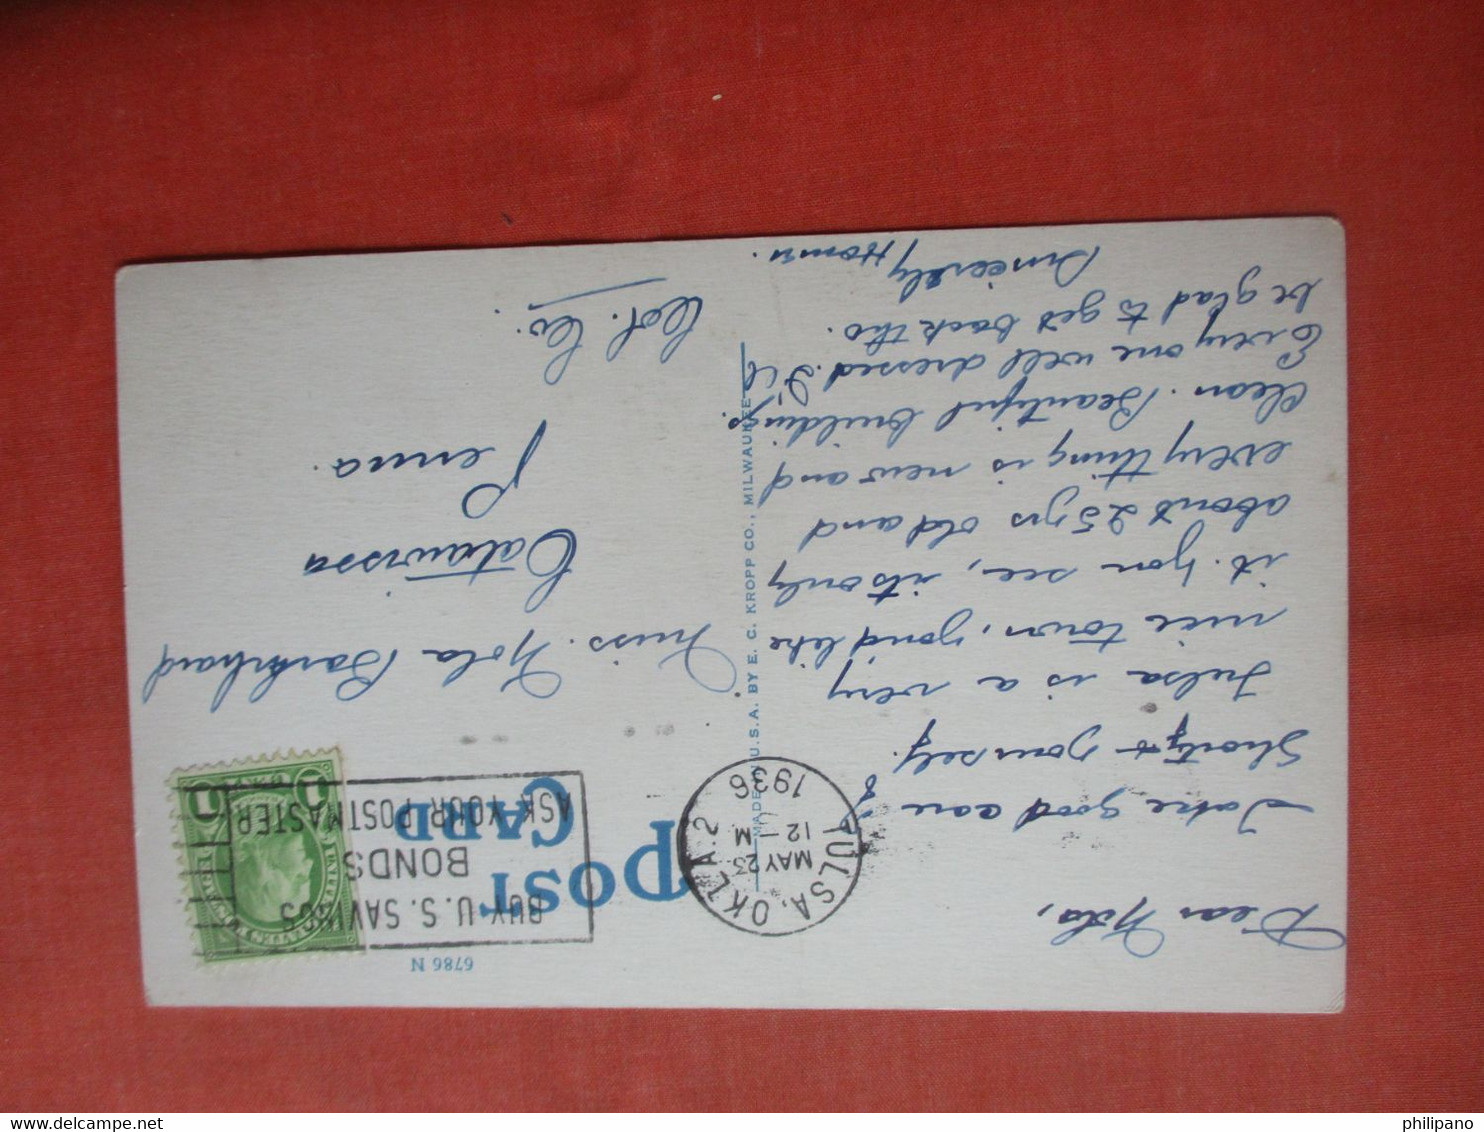 6786 N
POST
CARD
BUY U.S. SAVINGS
BONDS
ASK YOUR POSTMASTER
TULSA, OKLA. 2
MAY 23
12 — M
1936
1 CENT 1
Dear Nola,
Take good care of
Shorty & yourself.
Tulsa is a very
nice town, you'd like
it. You see, its only
about 25 yrs old and
everything is new and
clean. Beautiful buildings.
Everyone well dressed. I'll
be glad to get back tho.
Sincerely
MADE IN U.S.A. BY E. C. KROPP CO., MILWAUKEE
Miss. Nola
Catawissa
Penna.
Col. Co.
www.delcampe.net
philipano